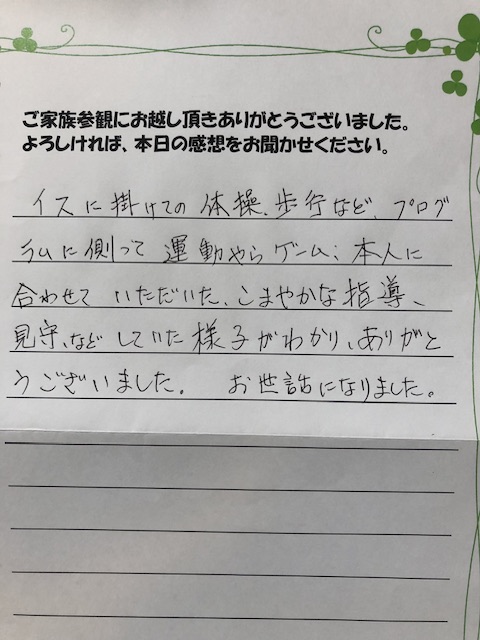 ご家族参観にお越し頂きありがとうございました。
よろしければ、本日の感想をお聞かせください。
イスに掛けての体操、歩行など、プログ
ラムに側って運動やらゲーム、本人に
合わせていただいた、こまやかな指導、
見守、などしていた様子がわかり、ありがと
うございました。 お世話になりました。